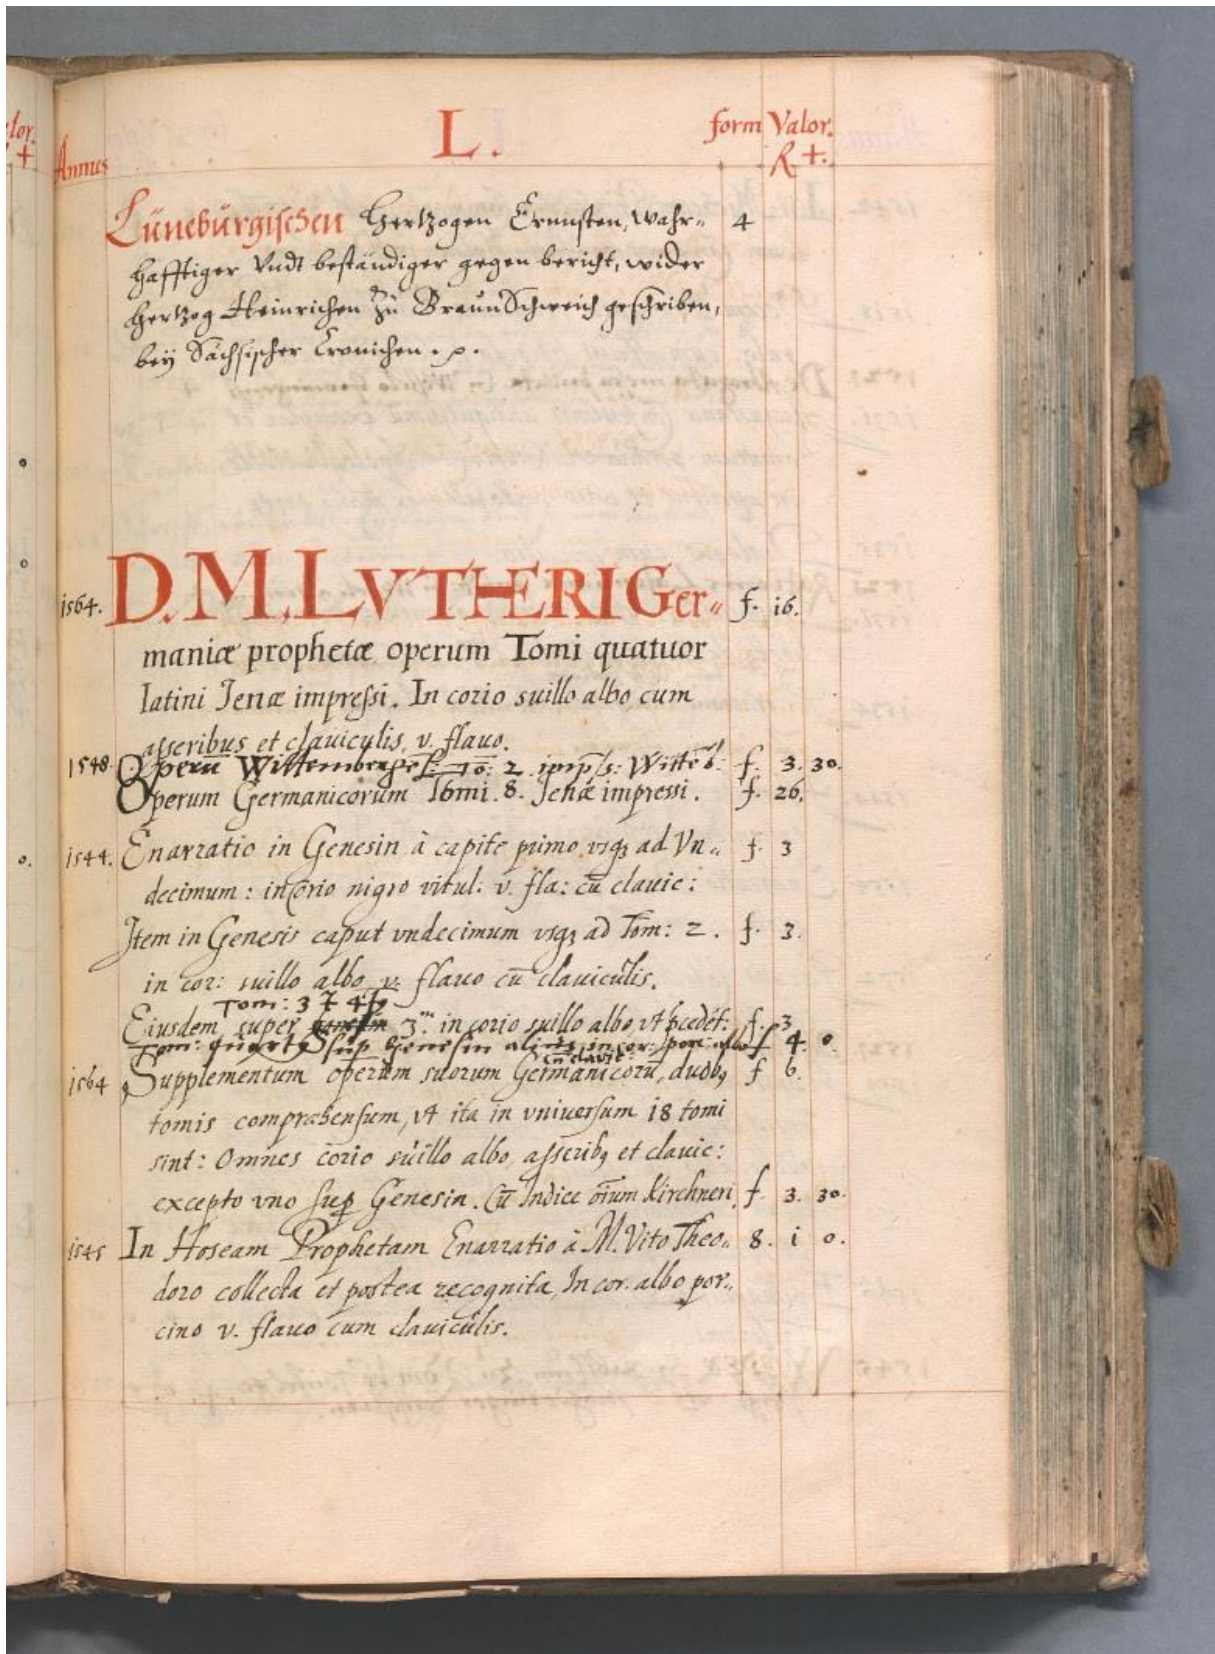 lor.
+
Annus
L.
form Valor.
R +.
Lüneburgischen Hertzogen Ernnsten, wahr„ 4
hafftiger Undt beständiger gegen bericht, wider
Hertzog Heinrichen Zu BraunSchweich geschriben,
beÿ Sächsischer Cronichen.
1564. D. M. LVTHERI Ger„ f. i6.
maniæ prophetæ operum Tomi quatuor
latini Jenæ impressi. In corio suillo albo cum
asseribus et clauiculis, v. flauo.
1548. Operū Wittembergēs: To: 2. imp̄s: Witteb: f. 3. 30.
Operum Germanicorum Tomi. 8. Jenæ impressi. f. 26.
o. 1544. Enarratio in Genesin à capite primo vsqꝫ ad Vn„ f. 3
decimum: in corio nigro vitul: v. fla: cū clauic:
Item in Genesis caput vndecimum vsqꝫ ad Tom: 2. f. 3.
in cor: suillo albo v. flauo cū clauiculis.
Tom: 3
Eiusdem super 3. in corio suillo albo, vt p̄cedēt: f. 3
Tom: quartus sup Genesin alius in cor: porc: albo f 4. 0.
cū clauic:
1564 Supplementum operum suorum Germanicorū, duobꝫ f 6.
tomis comprahensum, vt ita in vniuersum i8 tomi
sint: Omnes corio suillo albo, asseribꝫ et clauic:
excepto vno sup Genesin. Cū Indice oīum Kirchneri, f. 3. 30.
1545 In Hoseam Prophetam Enarratio à M. Vito Theo„ 8. i 0.
doro collecta et postea recognita, In cor. albo por„
cino v. flauo cum clauiculis.